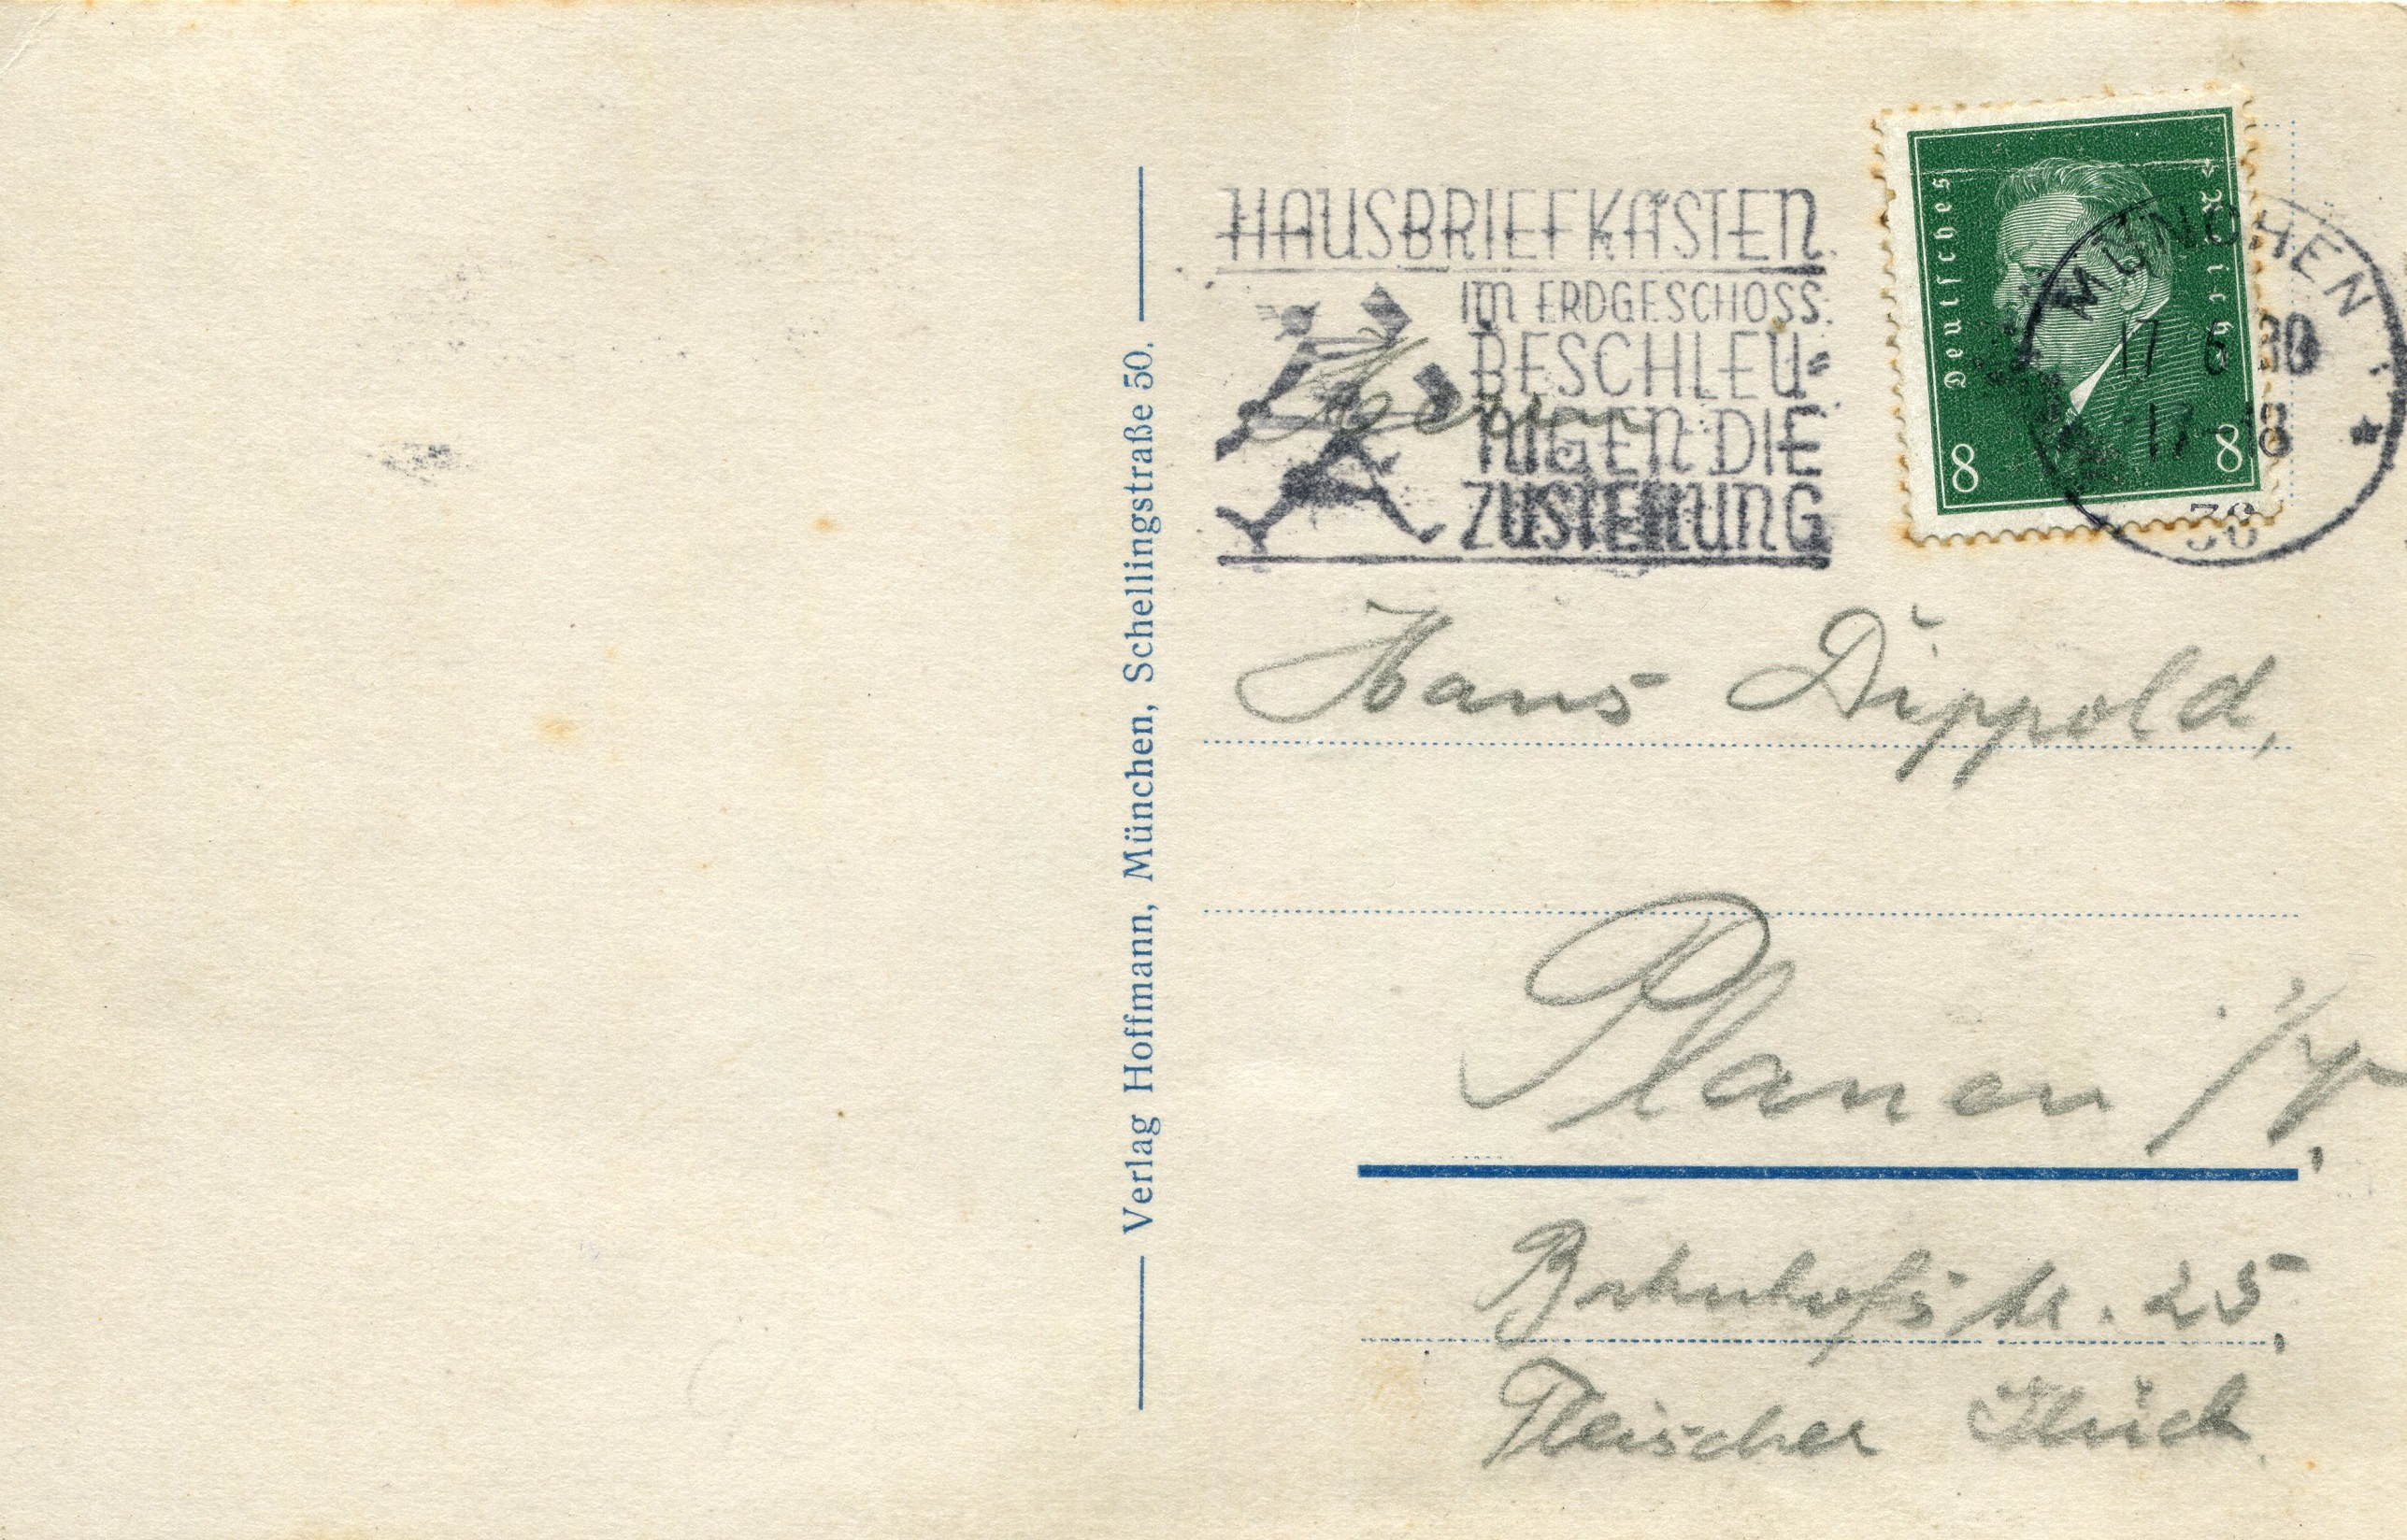 Verlag Hoffmann, München, Schellingstraße 50.
HAUSBRIEFKÄSTEN
IM ERDGESCHOSS
BESCHLEU-
NIGEN DIE
ZUSTELLUNG
Deutsches Reich
8 8
MÜNCHEN
17 6 30
17-18
38
Herrn
Hans Dippold,
Plauen i/V.
Bahnhofstr. 25,
Fleischer